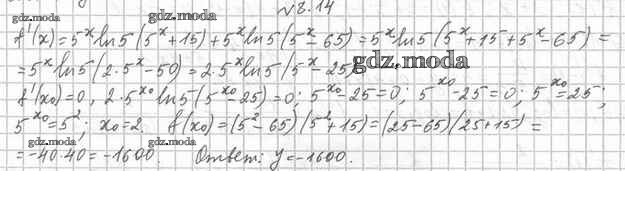 №8.14
gdz.moda
gdz.moda
f'(x)=5^x ln5(5^x+15)+5^x ln5(5^x-65)=5^x ln5(5^x+15+5^x-65)=
=5^x ln5(2·5^x-50)=2·5^x ln5(5^x-25)
gdz.moda
f'(x₀)=0, 2·5^x₀ ln5(5^x₀-25)=0; 5^x₀-25=0; 5^x₀-25=0; 5^x₀=25;
5^x₀=5²; x₀=2. f(x₀)=(5²-65)(5²+15)=(25-65)(25+15)=
gdz.moda
gdz.moda
=-40·40=-1600. Ответ: y=-1600.